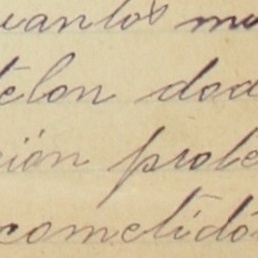 uantos mu
telon dad
ción prole
cometidó